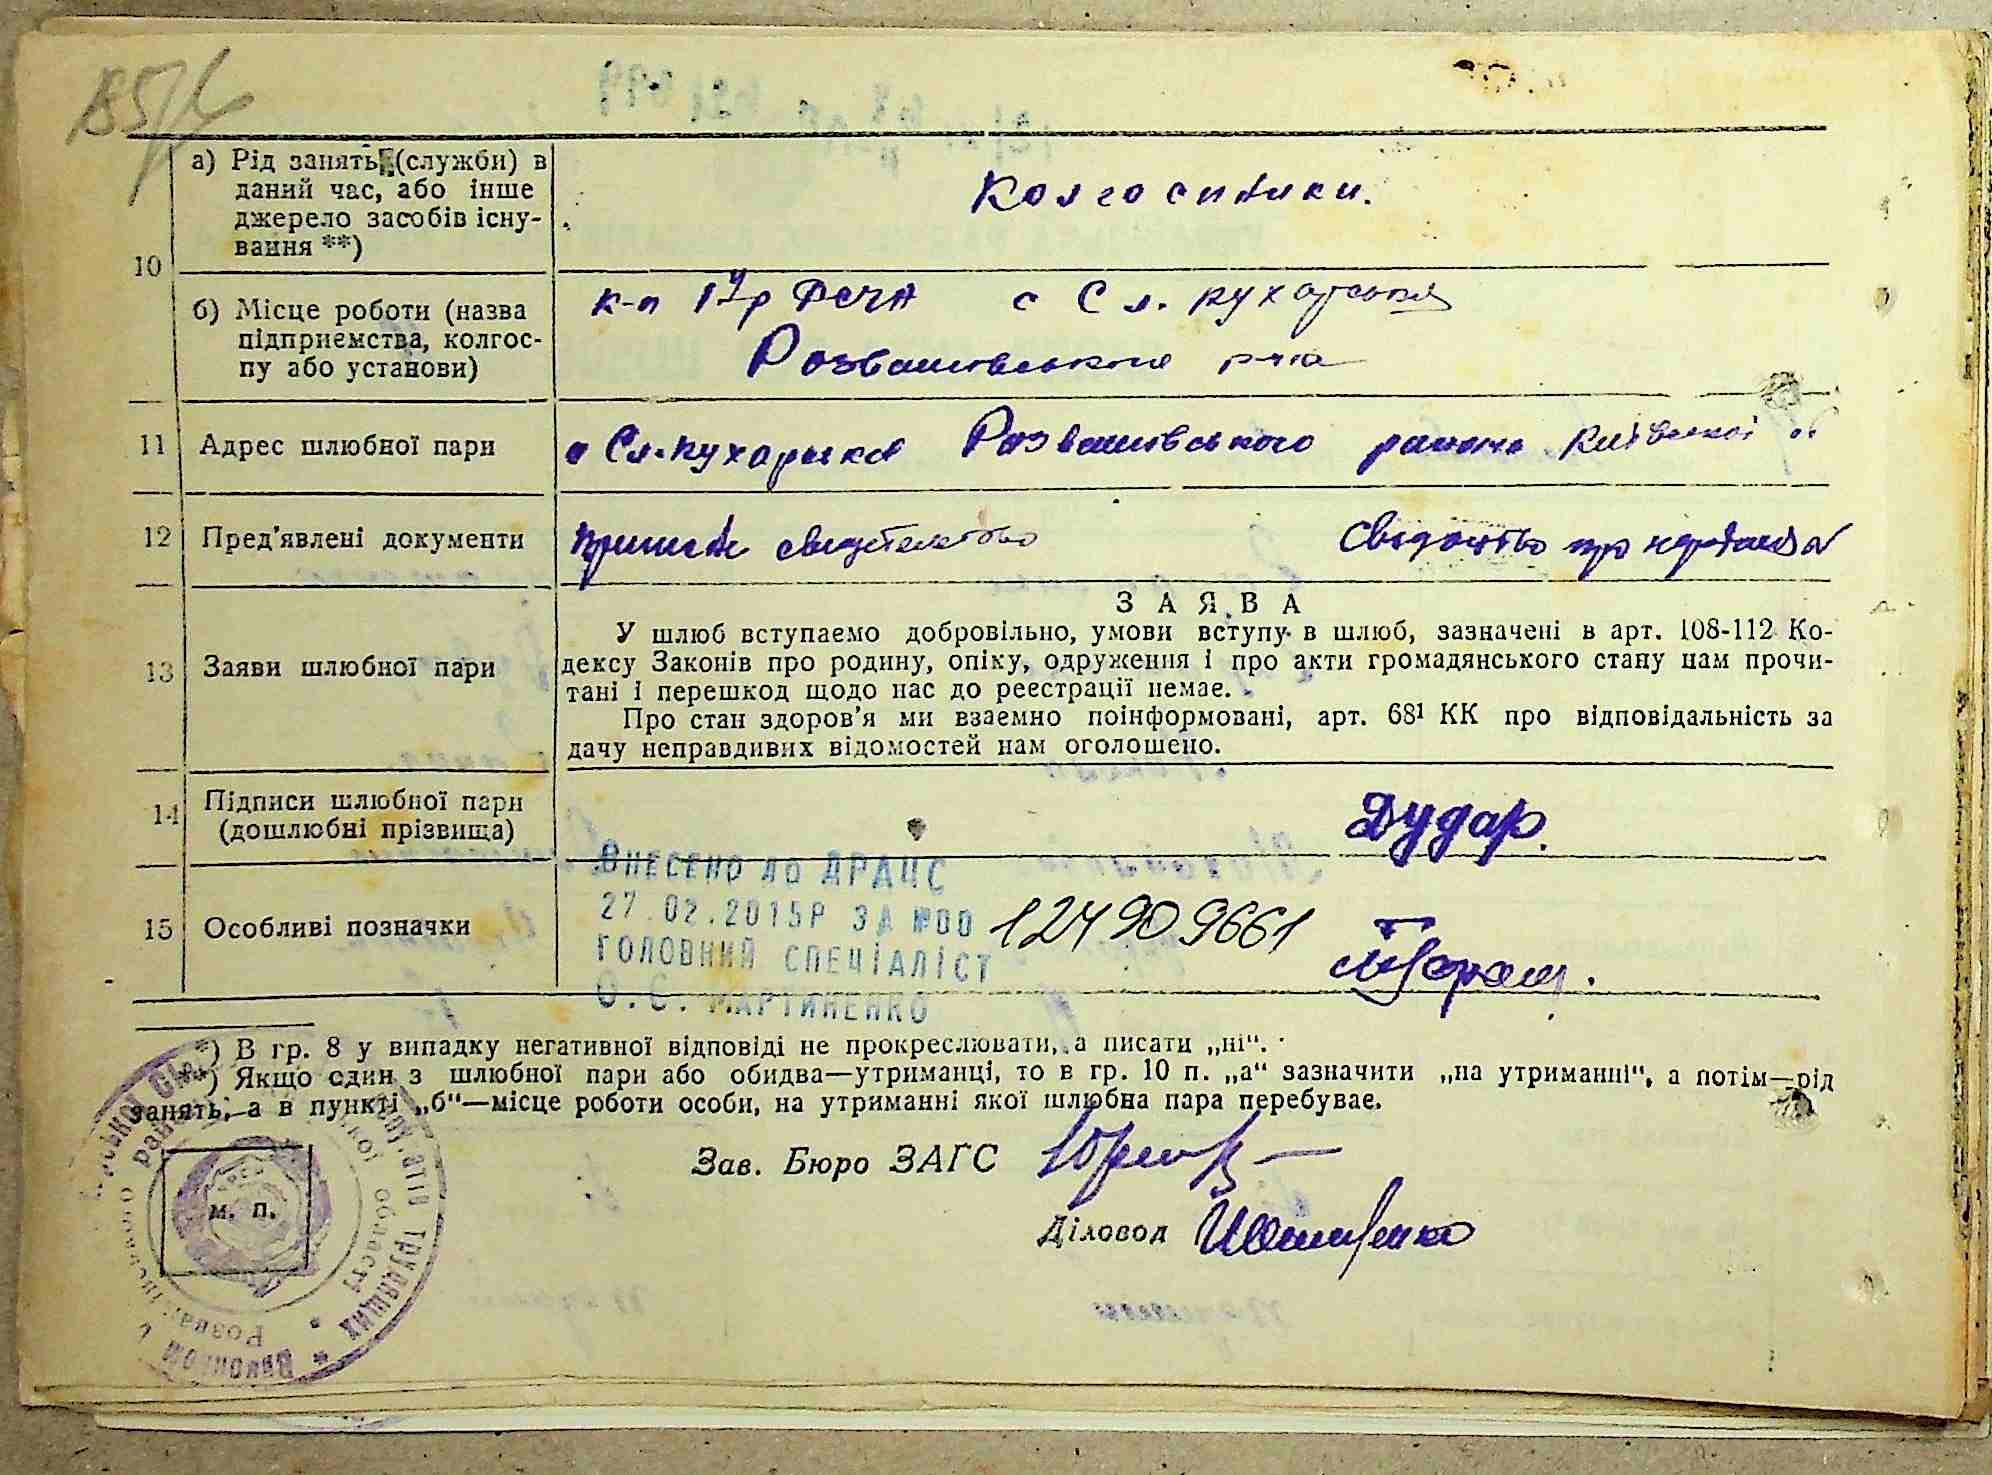 10
а) Рід занять (служби) в
даний час, або інше
джерело засобів існу-
вання **)
Колгоспники.
б) Місце роботи (назва
підприємства, колгос-
пу або установи)
с Сл. Кухарська
Розважівського р-на
11 Адрес шлюбної пари
с Сл. Кухарська Розважівського района Київської об
12 Пред'явлені документи
свидетельство Свідоцтво про народження
ЗАЯВА
13 Заяви шлюбної пари
У шлюб вступаємо добровільно, умови вступу в шлюб, зазначені в арт. 108-112 Ко-
дексу Законів про родину, опіку, одруження і про акти громадянського стану нам прочи-
тані і перешкод щодо нас до реєстрації немає.
Про стан здоров'я ми взаємно поінформовані, арт. 68¹ КК про відповідальність за
дачу неправдивих відомостей нам оголошено.
14 Підписи шлюбної пари
(дошлюбні прізвища)
Дудар.
15 Особливі позначки
ВНЕСЕНО ДО ДРАЦС
27.02.2015Р ЗА №00 124909661
ГОЛОВНИЙ СПЕЦІАЛІСТ
О.С. МАРТИНЕНКО
*) В гр. 8 у випадку негативної відповіді не прокреслювати, а писати „ні".
**) Якщо один з шлюбної пари або обидва—утриманці, то в гр. 10 п. „а" зазначити „на утриманні", а потім—рід
занять, а в пункті „б"—місце роботи особи, на утриманні якої шлюбна пара перебуває.
Зав. Бюро ЗАГС
Діловод
м. п.